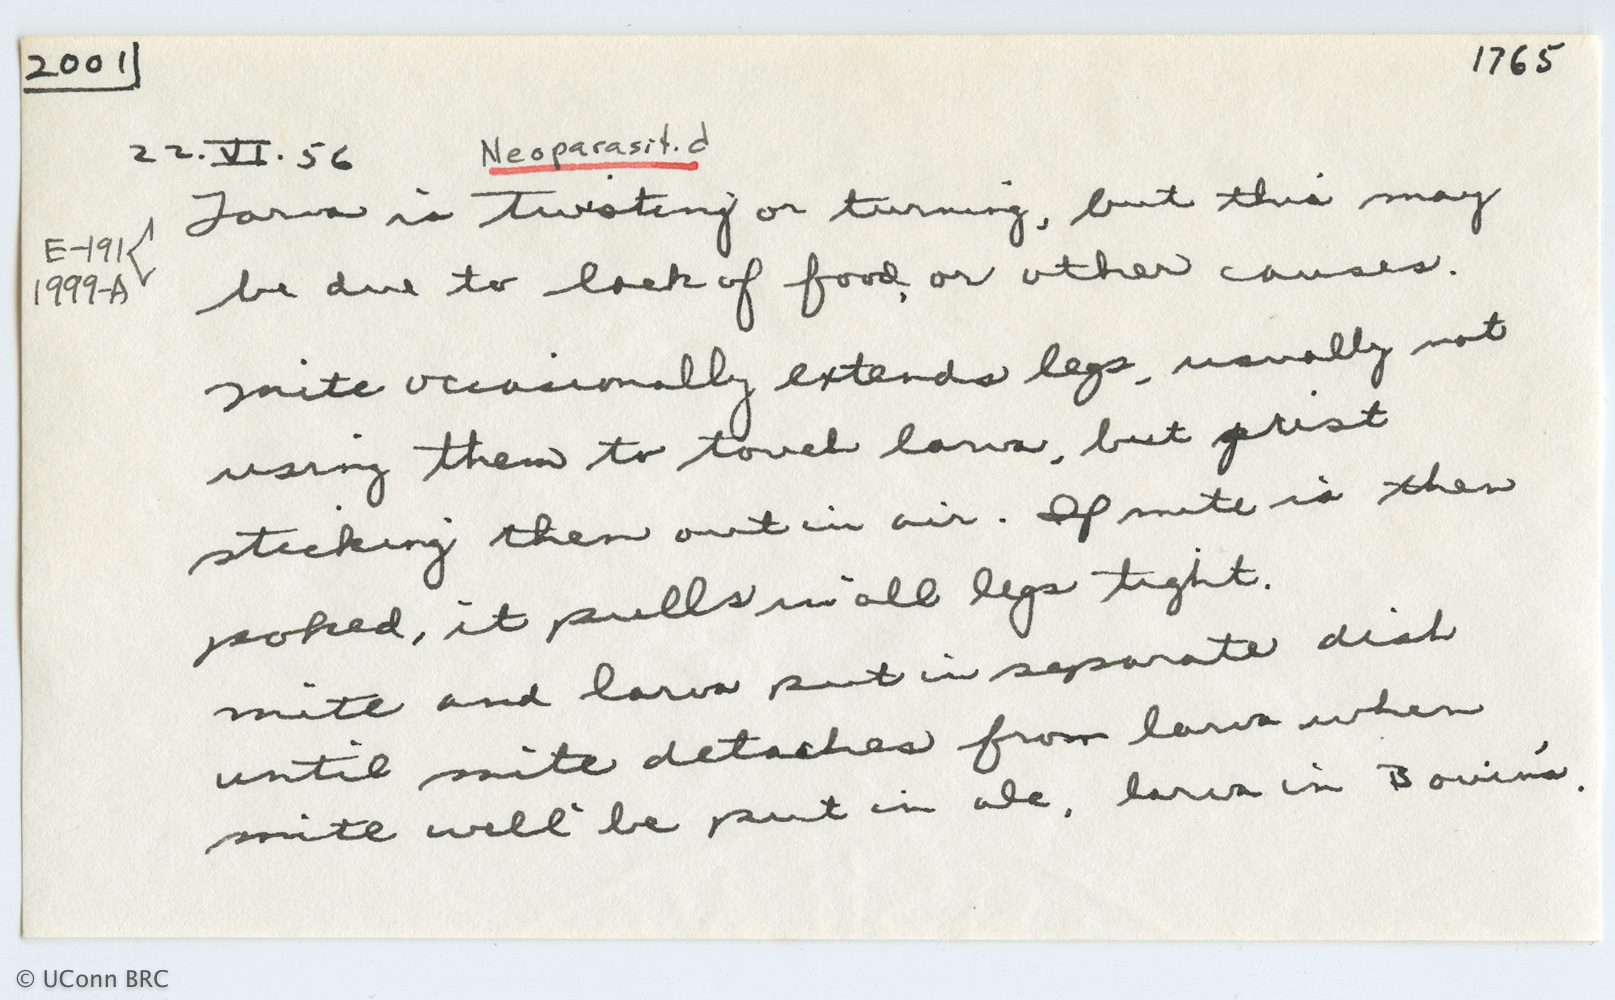 2001 1765
22.VI.56 Neoparasit.d
E-191
1999-A
Larva is twisting or turning, but this may
be due to lack of food, or other causes.
Mite occasionally extends legs, usually not
using them to touch larva, but just
sticking them out in air. If mite is then
poked, it pulls in all legs tight.
Mite and larva put in separate dish
until mite detaches from larva when
mite will be put in alc, larva in Bouin's.
© UConn BRC